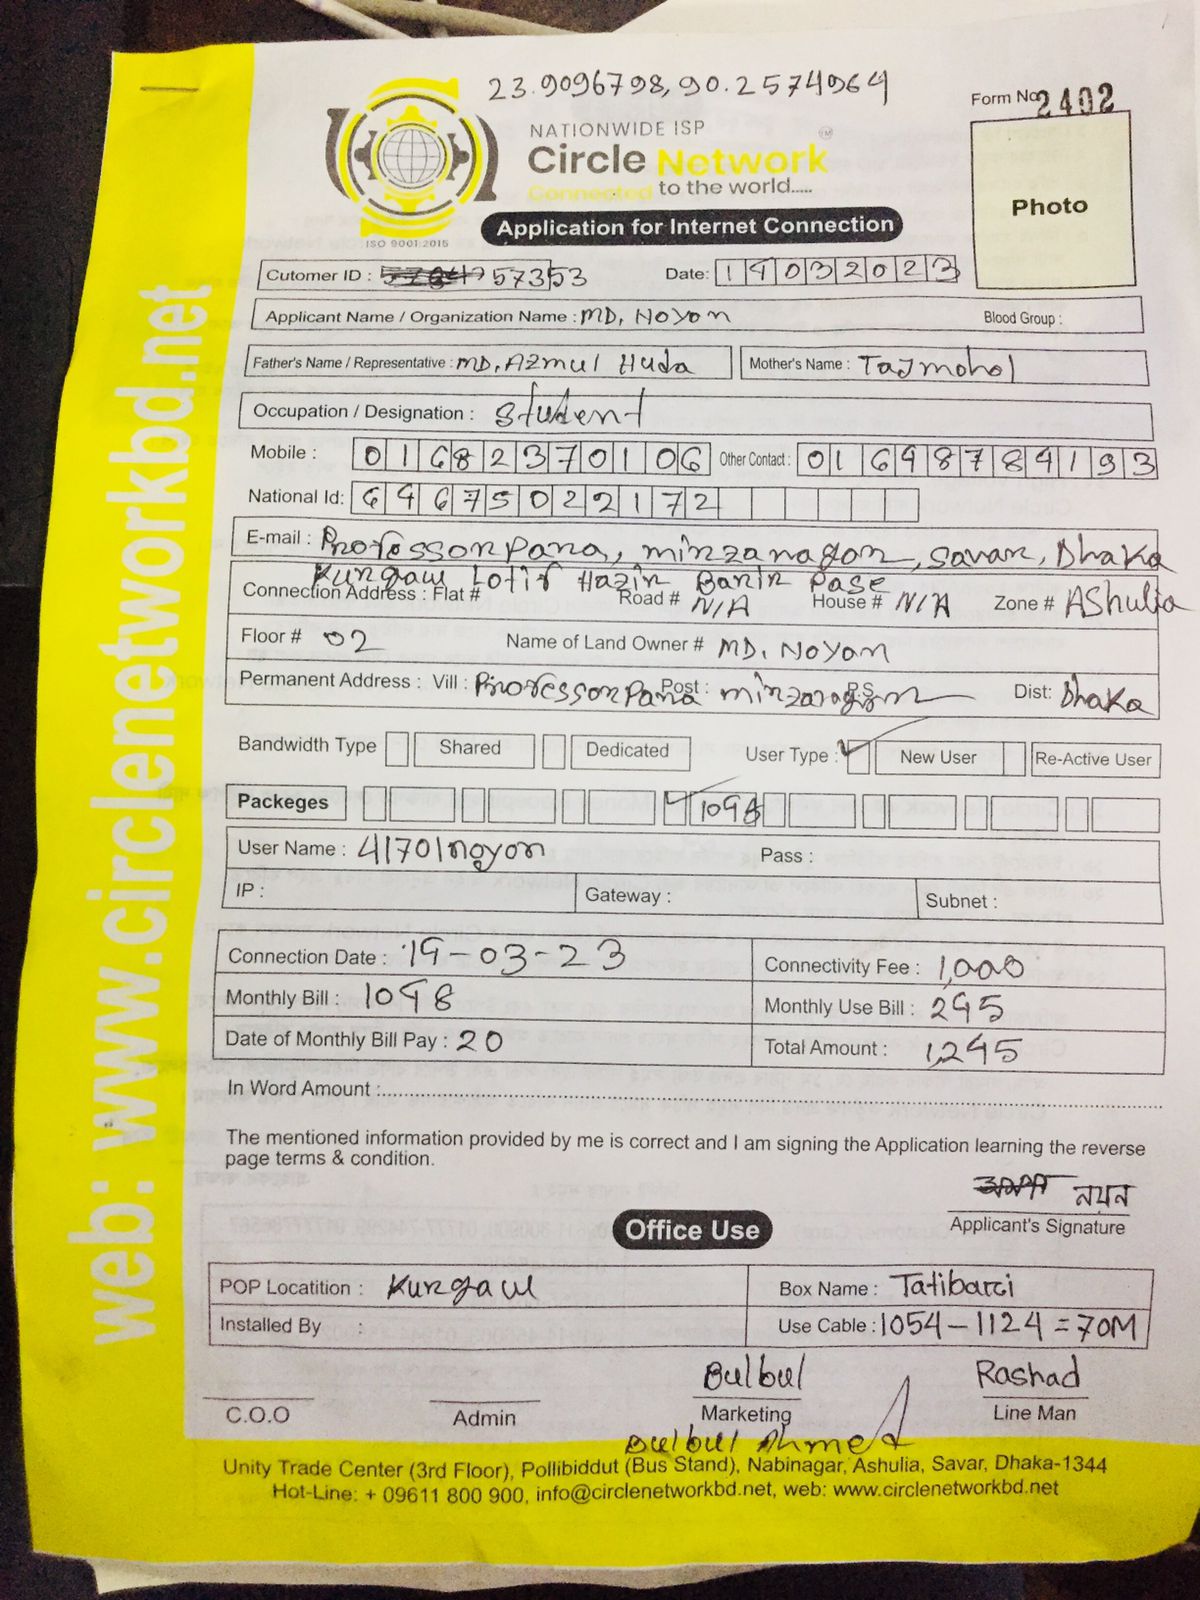 23.9096798,90.2574964
Form No. 2402
NATIONWIDE ISP
Circle Network
TM
Connected to the world.....
ISO 9001:2015
Application for Internet Connection
Photo
Cutomer ID : 57353 Date: 19032023
Applicant Name / Organization Name : MD, Noyon Blood Group :
Father's Name / Representative : MD. Azmul Huda Mother's Name : Tajmohol
Occupation / Designation : Student
Mobile : 01682370106 Other Contact : 01698784193
National Id: 6467502217 2
E-mail : Professorpara, mirzanagor, savar, Dhaka
Kurgaw Lotif Hazir Barir Pase
Connection Address : Flat # Road # N/A House # N/A Zone # AShulia
Floor # 02 Name of Land Owner # MD. Noyon
Permanent Address : Vill : Professorpara Post : mirzanagor P.S Dist: Dhaka
Bandwidth Type Shared Dedicated User Type : New User Re-Active User
Packeges 1098
User Name : 41701noyon Pass :
IP : Gateway : Subnet :
Connection Date : 19-03-23 Connectivity Fee : 1,000
Monthly Bill : 1098 Monthly Use Bill : 295
Date of Monthly Bill Pay : 20 Total Amount : 1,295
In Word Amount :
The mentioned information provided by me is correct and I am signing the Application learning the reverse
page terms & condition.
নয়ন
Applicant's Signature
Office Use
POP Locatition : Kurgaw Box Name : Tatibari
Installed By : Use Cable : 1054-1124 = 70M
Bulbul Rashad
C.O.O Admin Marketing Line Man
Bulbul Ahmed
Unity Trade Center (3rd Floor), Pollibiddut (Bus Stand), Nabinagar, Ashulia, Savar, Dhaka-1344
Hot-Line: + 09611 800 900, info@circlenetworkbd.net, web: www.circlenetworkbd.net
web: www.circlenetworkbd.net